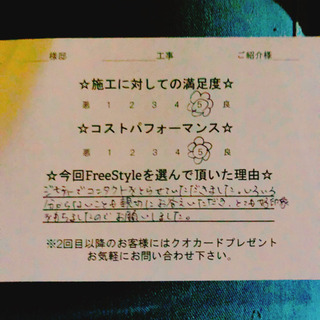 様邸 工事 ご紹介様
☆施工に対しての満足度☆
悪 1 2 3 4 5 良
☆コストパフォーマンス☆
悪 1 2 3 4 5 良
☆今回FreeStyleを選んで頂いた理由☆
ジモティーでコンタクトをとらせていただきました。いろいろ
分からないことも親切にお答えいただき、とても好印象
を持ちましたのでお願いしました。
※2回目以降のお客様にはクオカードプレゼント
お気軽にお問い合わせ下さい。